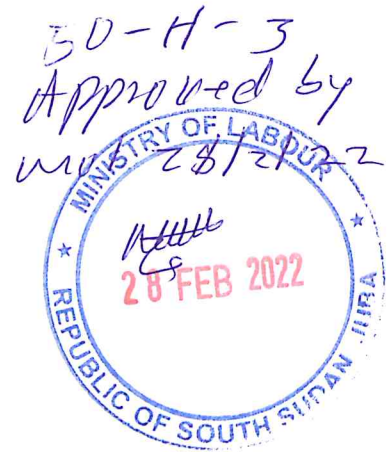 50-H-3
Approved by
MoL 28/2/22
MINISTRY OF LABOUR
28 FEB 2022
REPUBLIC OF SOUTH SUDAN JUBA